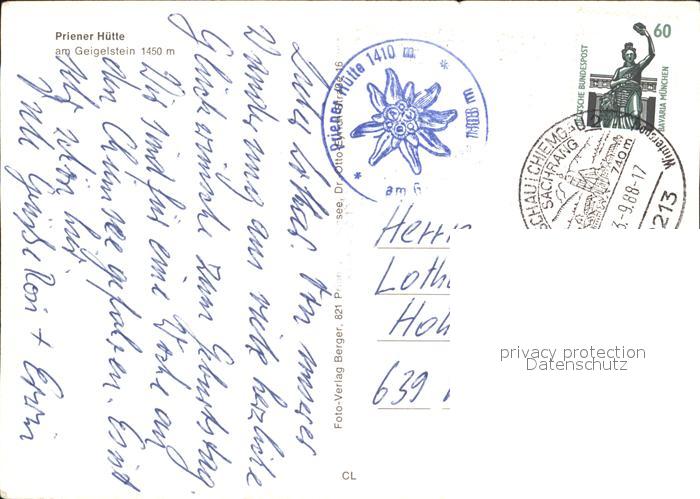 Priener Hütte
am Geigelstein 1450 m
Lieber Lothar! Von unserer
Wanderung aus viele herzliche
Glückwünsche zum Geburtstag.
Wir sind für eine Woche an
den Chiemsee gefahren. Es ist
sehr schön hier.
Viele Grüße Rosi + Erwin
Foto-Verlag Berger, 821 Pr
see, Dr. Otto
straße 16
CL
Priener Hütte 1410 m
1808 m
am G
60
DEUTSCHE BUNDESPOST
BAVARIA MÜNCHEN
SCHAU I CHIEMG
SACHRANG
740 m
Winterspo
3.-9.88-17
8213
Herrn
Loth
Hoh
639
privacy protection
Datenschutz